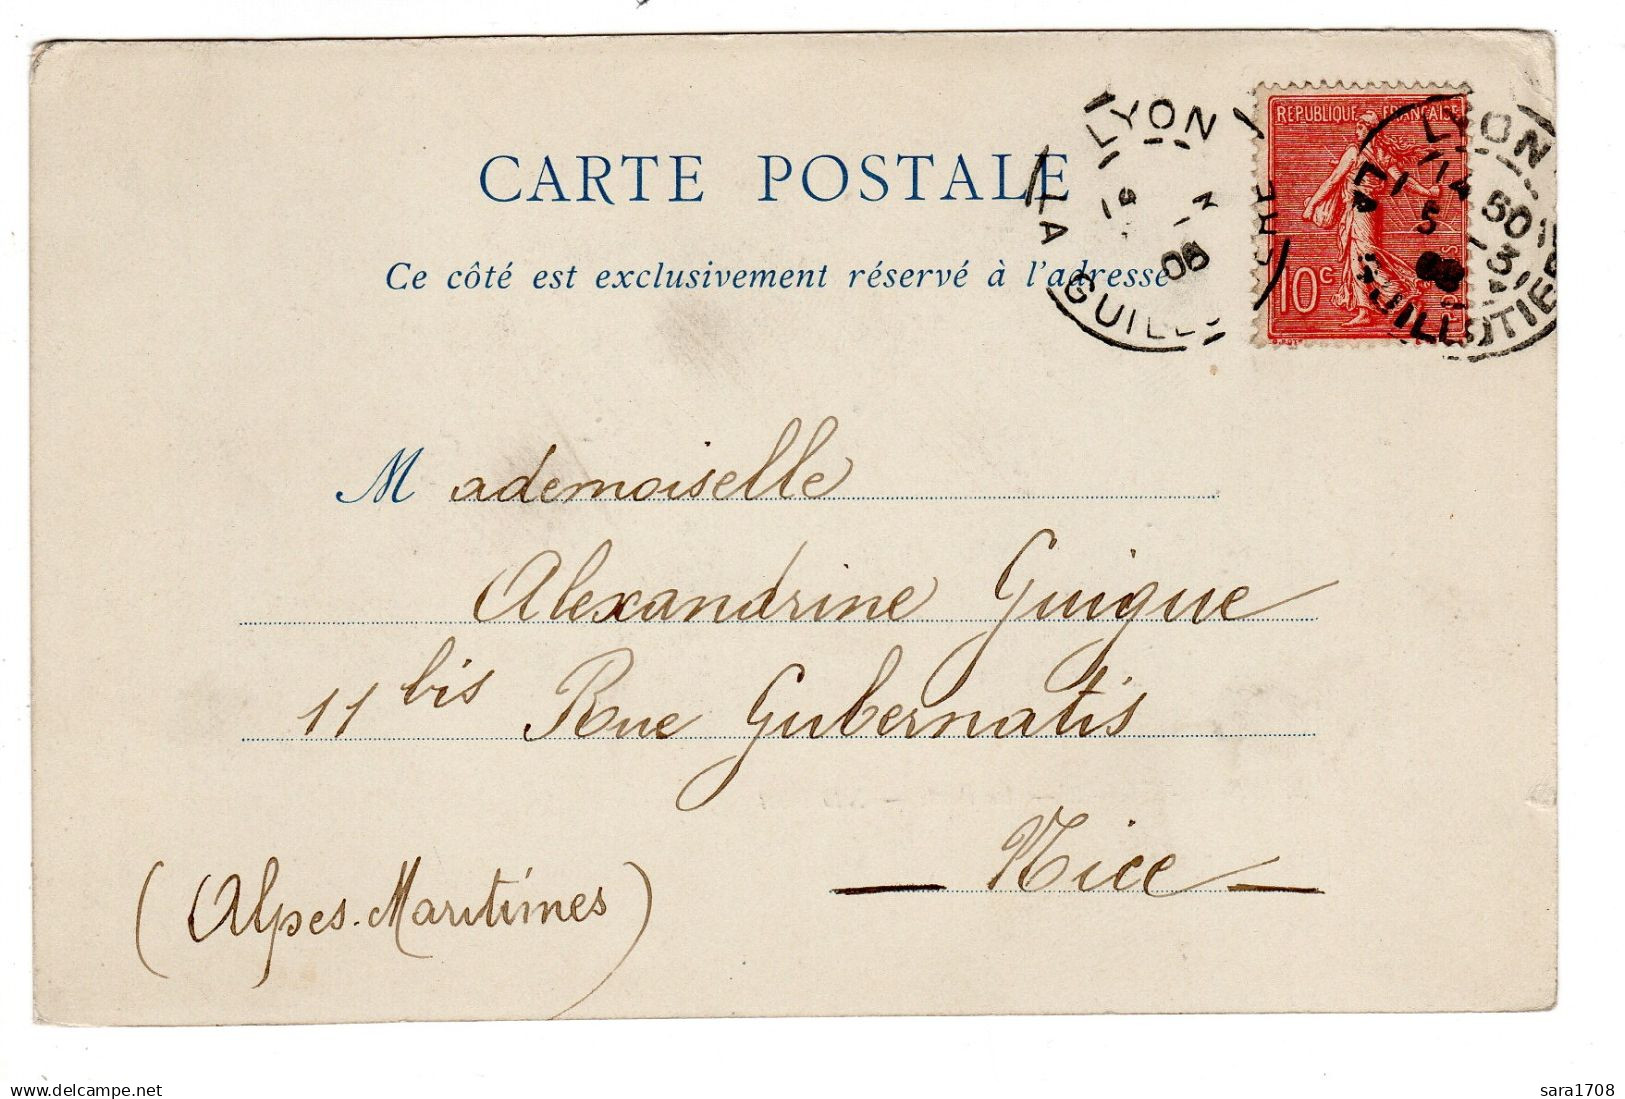 CARTE POSTALE
Ce côté est exclusivement réservé à l'adresse
LYON
LA GUILL
08
REPUBLIQUE FRANÇAISE
10c
LYON
LA GUILLOTIERE
Mademoiselle
Alexandrine Guigue
11 bis Rue Gubernatis
Nice
(Alpes-Maritimes)
www.delcampe.net
sara1708